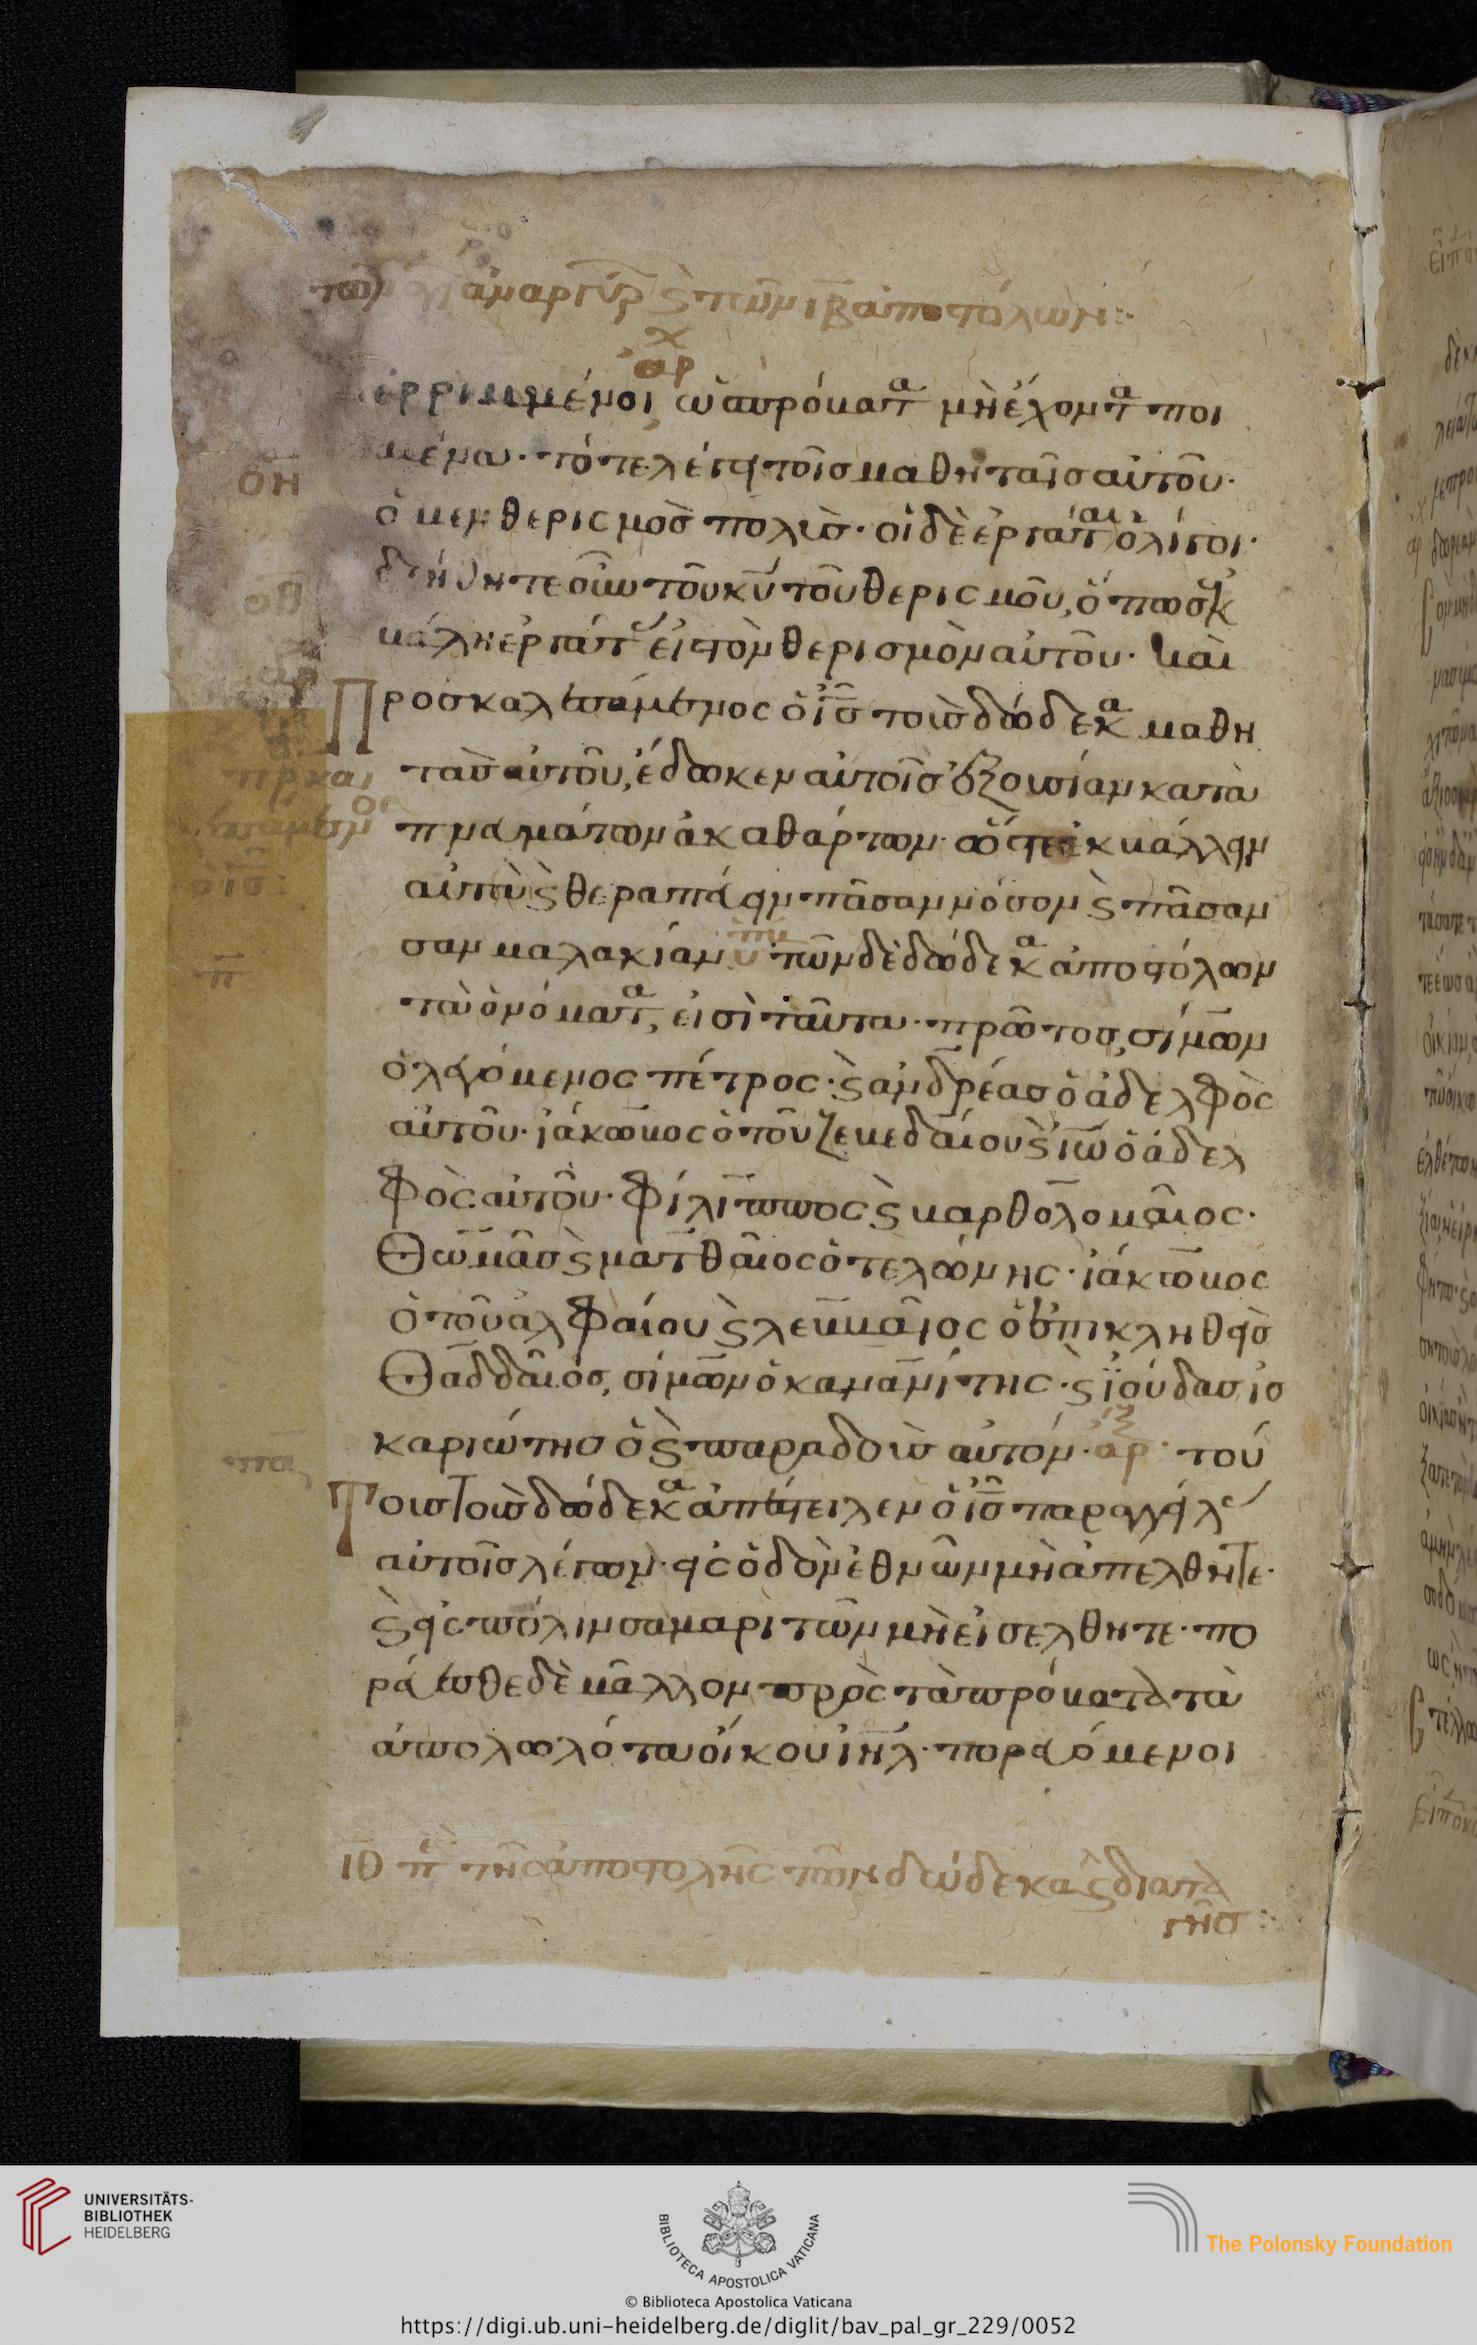 τῶν ἁγί ἀναργύρ ϗ τῶν ιβ ἀποστόλων:
ἀρχ
ἐρριμμένοι, ὡς πρόβατα μὴ ἔχοντα ποι
μένα· τότε λέγει τοῖς μαθηταῖς αὐτοῦ·
ΟΗ
ὁ μὲν θερισμὸς πολὺς· οἱ δὲ ἐργάται ὀλίγοι·
δεήθητε οὖν τοῦ κυ τοῦ θερισμοῦ, ὅπως ἐκ
οβ
βάλη ἐργάτ εἰς τὸν θερισμὸν αὐτοῦ· καὶ
αρ
Προσκαλεσάμενος ὁ ις τοὺς δώδεκα μαθη
τὰς αὐτοῦ, ἔδωκεν αὐτοῖς ἐξουσίαν κατὰ
πνάτων ἀκαθάρτων· ὥστε ἐκβάλλειν
ὁ ις:
αὐτὰ ϗ θεραπεύειν πᾶσαν νόσον ϗ πᾶσαν
σαν μαλακίαν· τῶν δὲ δώδεκα ἀποστόλων
π
τὰ ὀνόματα, εἰσὶ ταῦτα· πρῶτος, σίμων
ὁ λεγόμενος πέτρος· ϗ ἀνδρέας ὁ ἀδελφὸς
αὐτοῦ· ἰάκωβος ὁ τοῦ ζεβεδαίου ϗ ἰω ὁ ἀδελ
φὸς αὐτοῦ· φίλιππος ϗ βαρθολομαῖος·
Θωμᾶς ϗ ματθαῖος ὁ τελώνης· ἰάκωβος
ὁ τοῦ ἀλφαίου ϗ λεββαῖος ὁ ἐπικληθεὶς
Θαδδαῖος, σίμων ὁ κανανίτης· ϗ ἰούδας ἰσ
καριώτης ὁ ϗ παραδοὺς αὐτόν· ἀρ· τού
Τους τοὺς δώδεκα ἀπέστειλεν ὁ ις παραγγείλ
αὐτοῖς λέγων· εἰς ὁδὸν ἐθνῶν μὴ ἀπέλθητε·
ϗ εἰς πόλιν σαμαριτῶν μὴ εἰσέλθητε· πο
ρεύεσθε δὲ μᾶλλον πρὸς τὰ πρόβατα τὰ
ἀπολωλότα οἴκου ιηλ· πορευόμενοι
ΙΘ π τῆς ἀποστολῆς τῶν δώδεκα ϗ διατα
γῆς:
UNIVERSITÄTS-
BIBLIOTHEK
HEIDELBERG
BIBLIOTECA APOSTOLICA VATICANA
The Polonsky Foundation
© Biblioteca Apostolica Vaticana
https://digi.ub.uni-heidelberg.de/diglit/bav_pal_gr_229/0052